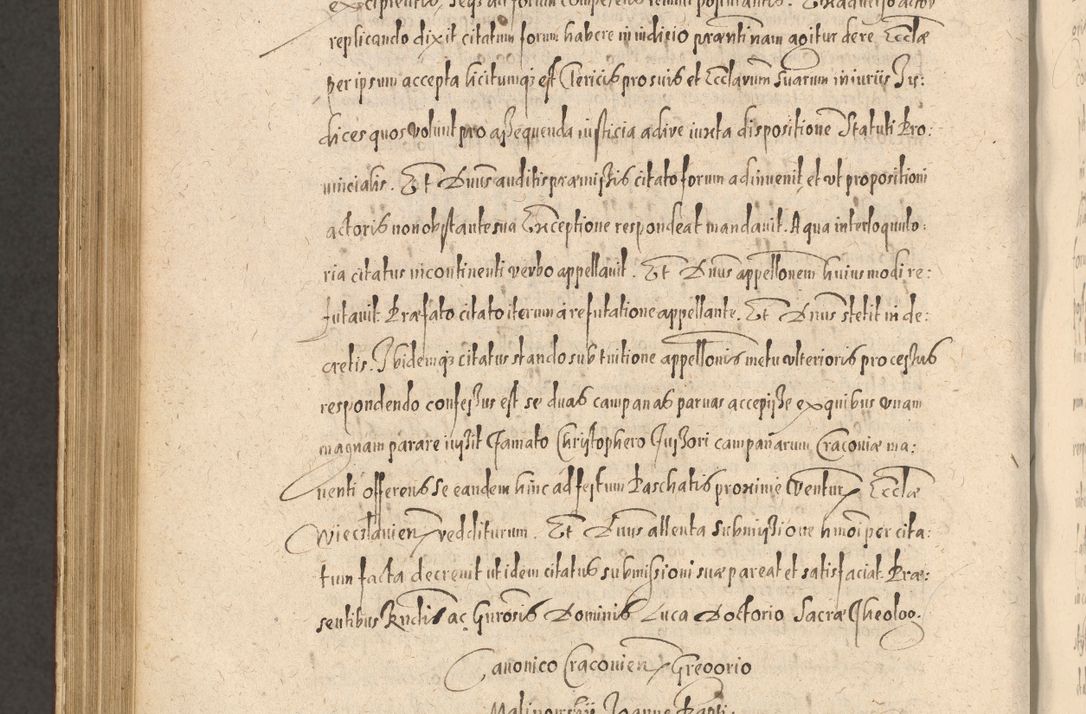 excipientis, seque ad forum competens remitti postulantis. Ex adverso actor
replicando dixit citatum forum habere in iudicio præsenti nam agitur de re Ecclæ
per ipsum accepta licitumq est Clericis pro suis et Ecclarum suarum iniuriis Iu:
dices quos volunt pro assequenda iusticia adire iuxta dispositione Statuti Pro:
uincialis. Et Dnus auditis præmissis citato forum adinuenit et ut propositioni
actoris non obstante sua Exceptione respondeat mandauit. A qua interloquuto:
ria citatus incontinenti verbo appellauit. Et Dnus appellonem huiusmodi re:
futauit. Præfato citato iterum à refutatione appellante. Et Dnus stetit in de:
cretis. Ibidemq citatus stando sub tuitione appellonis metu ulterioris processus
respondendo confessus est se duas campanas paruas accepisse ex quibus unam
magnam parare iussit famato Christophero fussori campanarum Cracoviæ ma:
nenti offerens se eandem hinc ad festum Paschatis proxime Ventur Ecclæ
Wieczlavien redditurum. Et Dnus attenta submissione hmoi per cita:
tum facta decreuit ut idem citatus submissioni suæ pareat et satisfaciat. Præ:
sentibus Rndis ac Gnrosis Dominis Luca Doctorio Sacræ Theolog.
Canonico Cracovien Gregorio
Malinowskij Joanne Bapti: